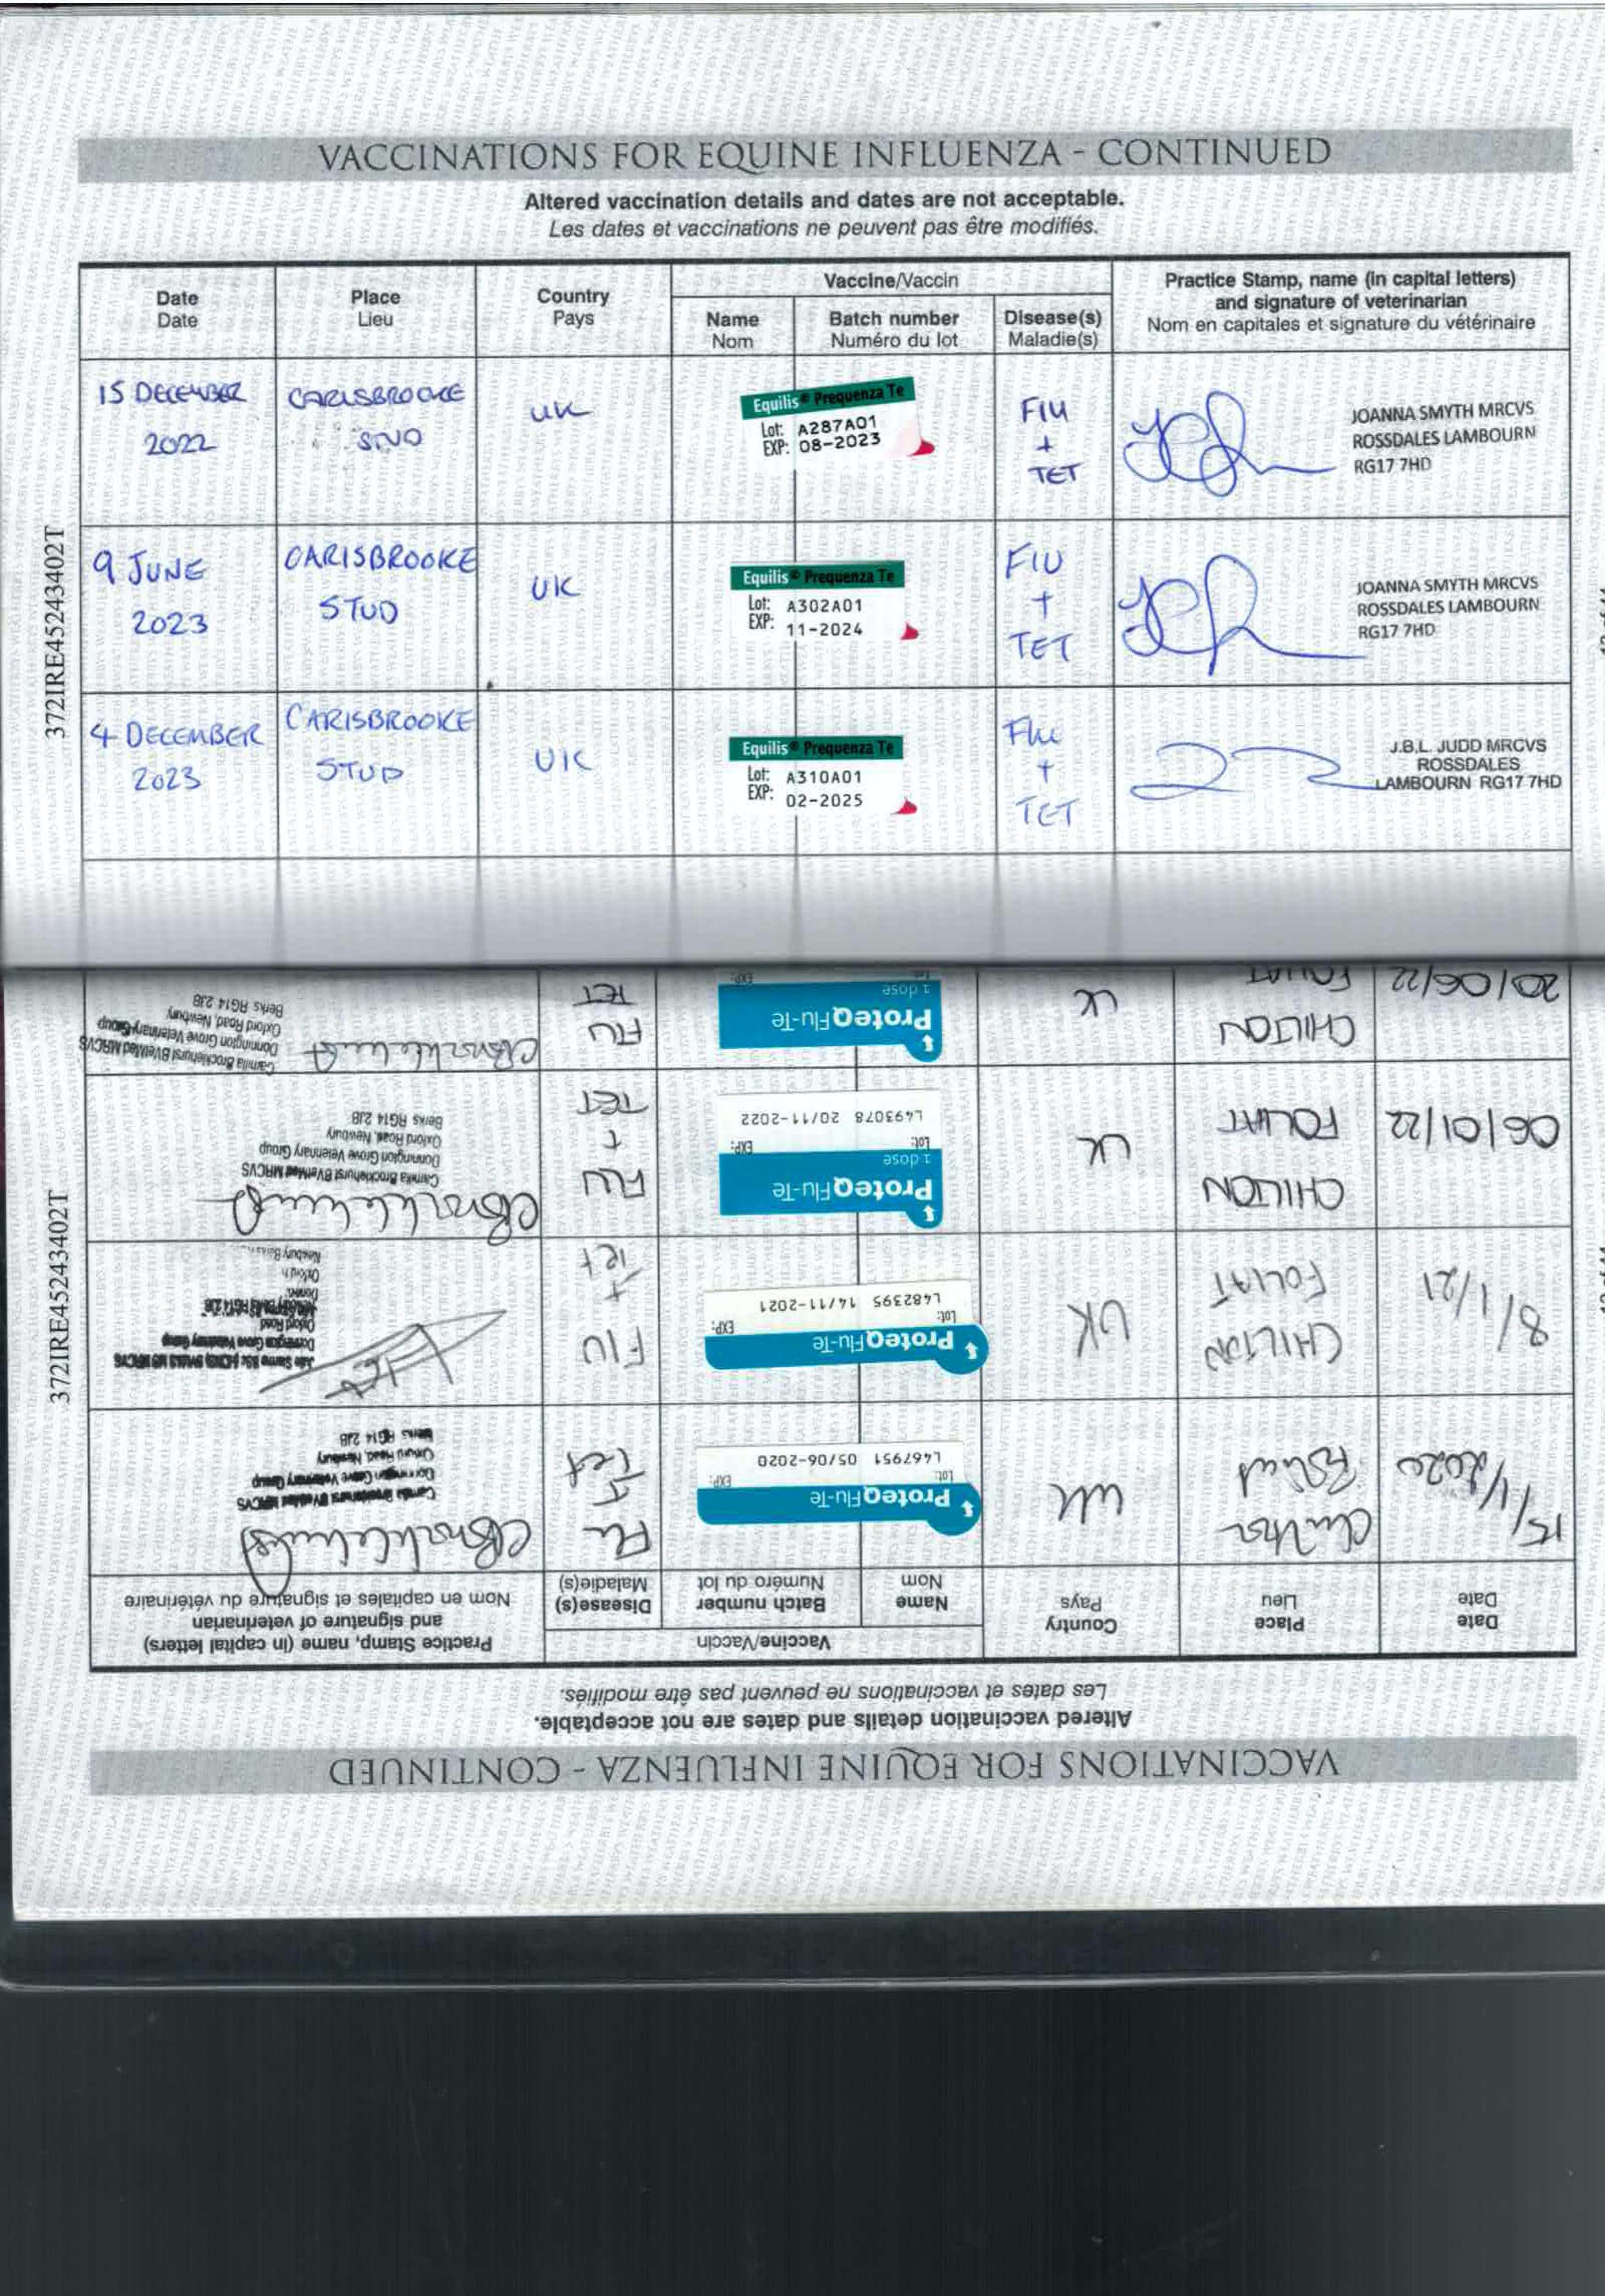 VACCINATIONS FOR EQUINE INFLUENZA - CONTINUED
Altered vaccination details and dates are not acceptable.
Les dates et vaccinations ne peuvent pas être modifiés.
Date
Date
Place
Lieu
Country
Pays
Vaccine/Vaccin
Name
Nom
Batch number
Numéro du lot
Disease(s)
Maladie(s)
Practice Stamp, name (in capital letters)
and signature of veterinarian
Nom en capitales et signature du vétérinaire
15 DECEMBER
2022
CARISBROOKE
STUD
UK
Equilis® Prequenza Te
Lot: A287A01
EXP: 08-2023
Flu
+
TET
JOANNA SMYTH MRCVS
ROSSDALES LAMBOURN
RG17 7HD
9 JUNE
2023
CARISBROOKE
STUD
UK
Equilis® Prequenza Te
Lot: A302A01
EXP: 11-2024
FlU
+
TET
JOANNA SMYTH MRCVS
ROSSDALES LAMBOURN
RG17 7HD
4 DECEMBER
2023
CARISBROOKE
STUD
UK
Equilis® Prequenza Te
Lot: A310A01
EXP: 02-2025
Flu
+
TET
J.B.L. JUDD MRCVS
ROSSDALES
LAMBOURN RG17 7HD
372IRE45243402T
VACCINATIONS FOR EQUINE INFLUENZA - CONTINUED
Altered vaccination details and dates are not acceptable.
Les dates et vaccinations ne peuvent pas être modifiés.
Date
Date
Place
Lieu
Country
Pays
Vaccine/Vaccin
Name
Nom
Batch number
Numéro du lot
Disease(s)
Maladie(s)
Practice Stamp, name (in capital letters)
and signature of veterinarian
Nom en capitales et signature du vétérinaire
15/1/2020
Chilton
Foliat
UK
ProteqFlu-Te
Lot: EXP:
L467951 05/06-2020
Flu
+
Tet
Camilla Brocklehurst BVetMed MRCVS
Donnington Grove Veterinary Group
Oxford Road, Newbury
Berks RG14 2JB
8/1/21
CHILTON
FOLIAT
UK
ProteqFlu-Te
Lot: EXP:
L482395 14/11-2021
FlU
+
Tet
Donnington Grove Veterinary Group
Oxford Road
06/01/22
CHILTON
FOLIAT
UK
ProteqFlu-Te
1 dose
Lot: EXP:
L493078 20/11-2022
FLU
+
TET
Camilla Brocklehurst BVetMed MRCVS
Donnington Grove Veterinary Group
Oxford Road, Newbury
Berks RG14 2JB
20/06/22
CHILTON
FOLIAT
UK
ProteqFlu-Te
1 dose
Lot: EXP:
FLU
TET
Camilla Brocklehurst BVetMed MRCVS
Donnington Grove Veterinary Group
Oxford Road, Newbury
Berks RG14 2JB
372IRE45243402T